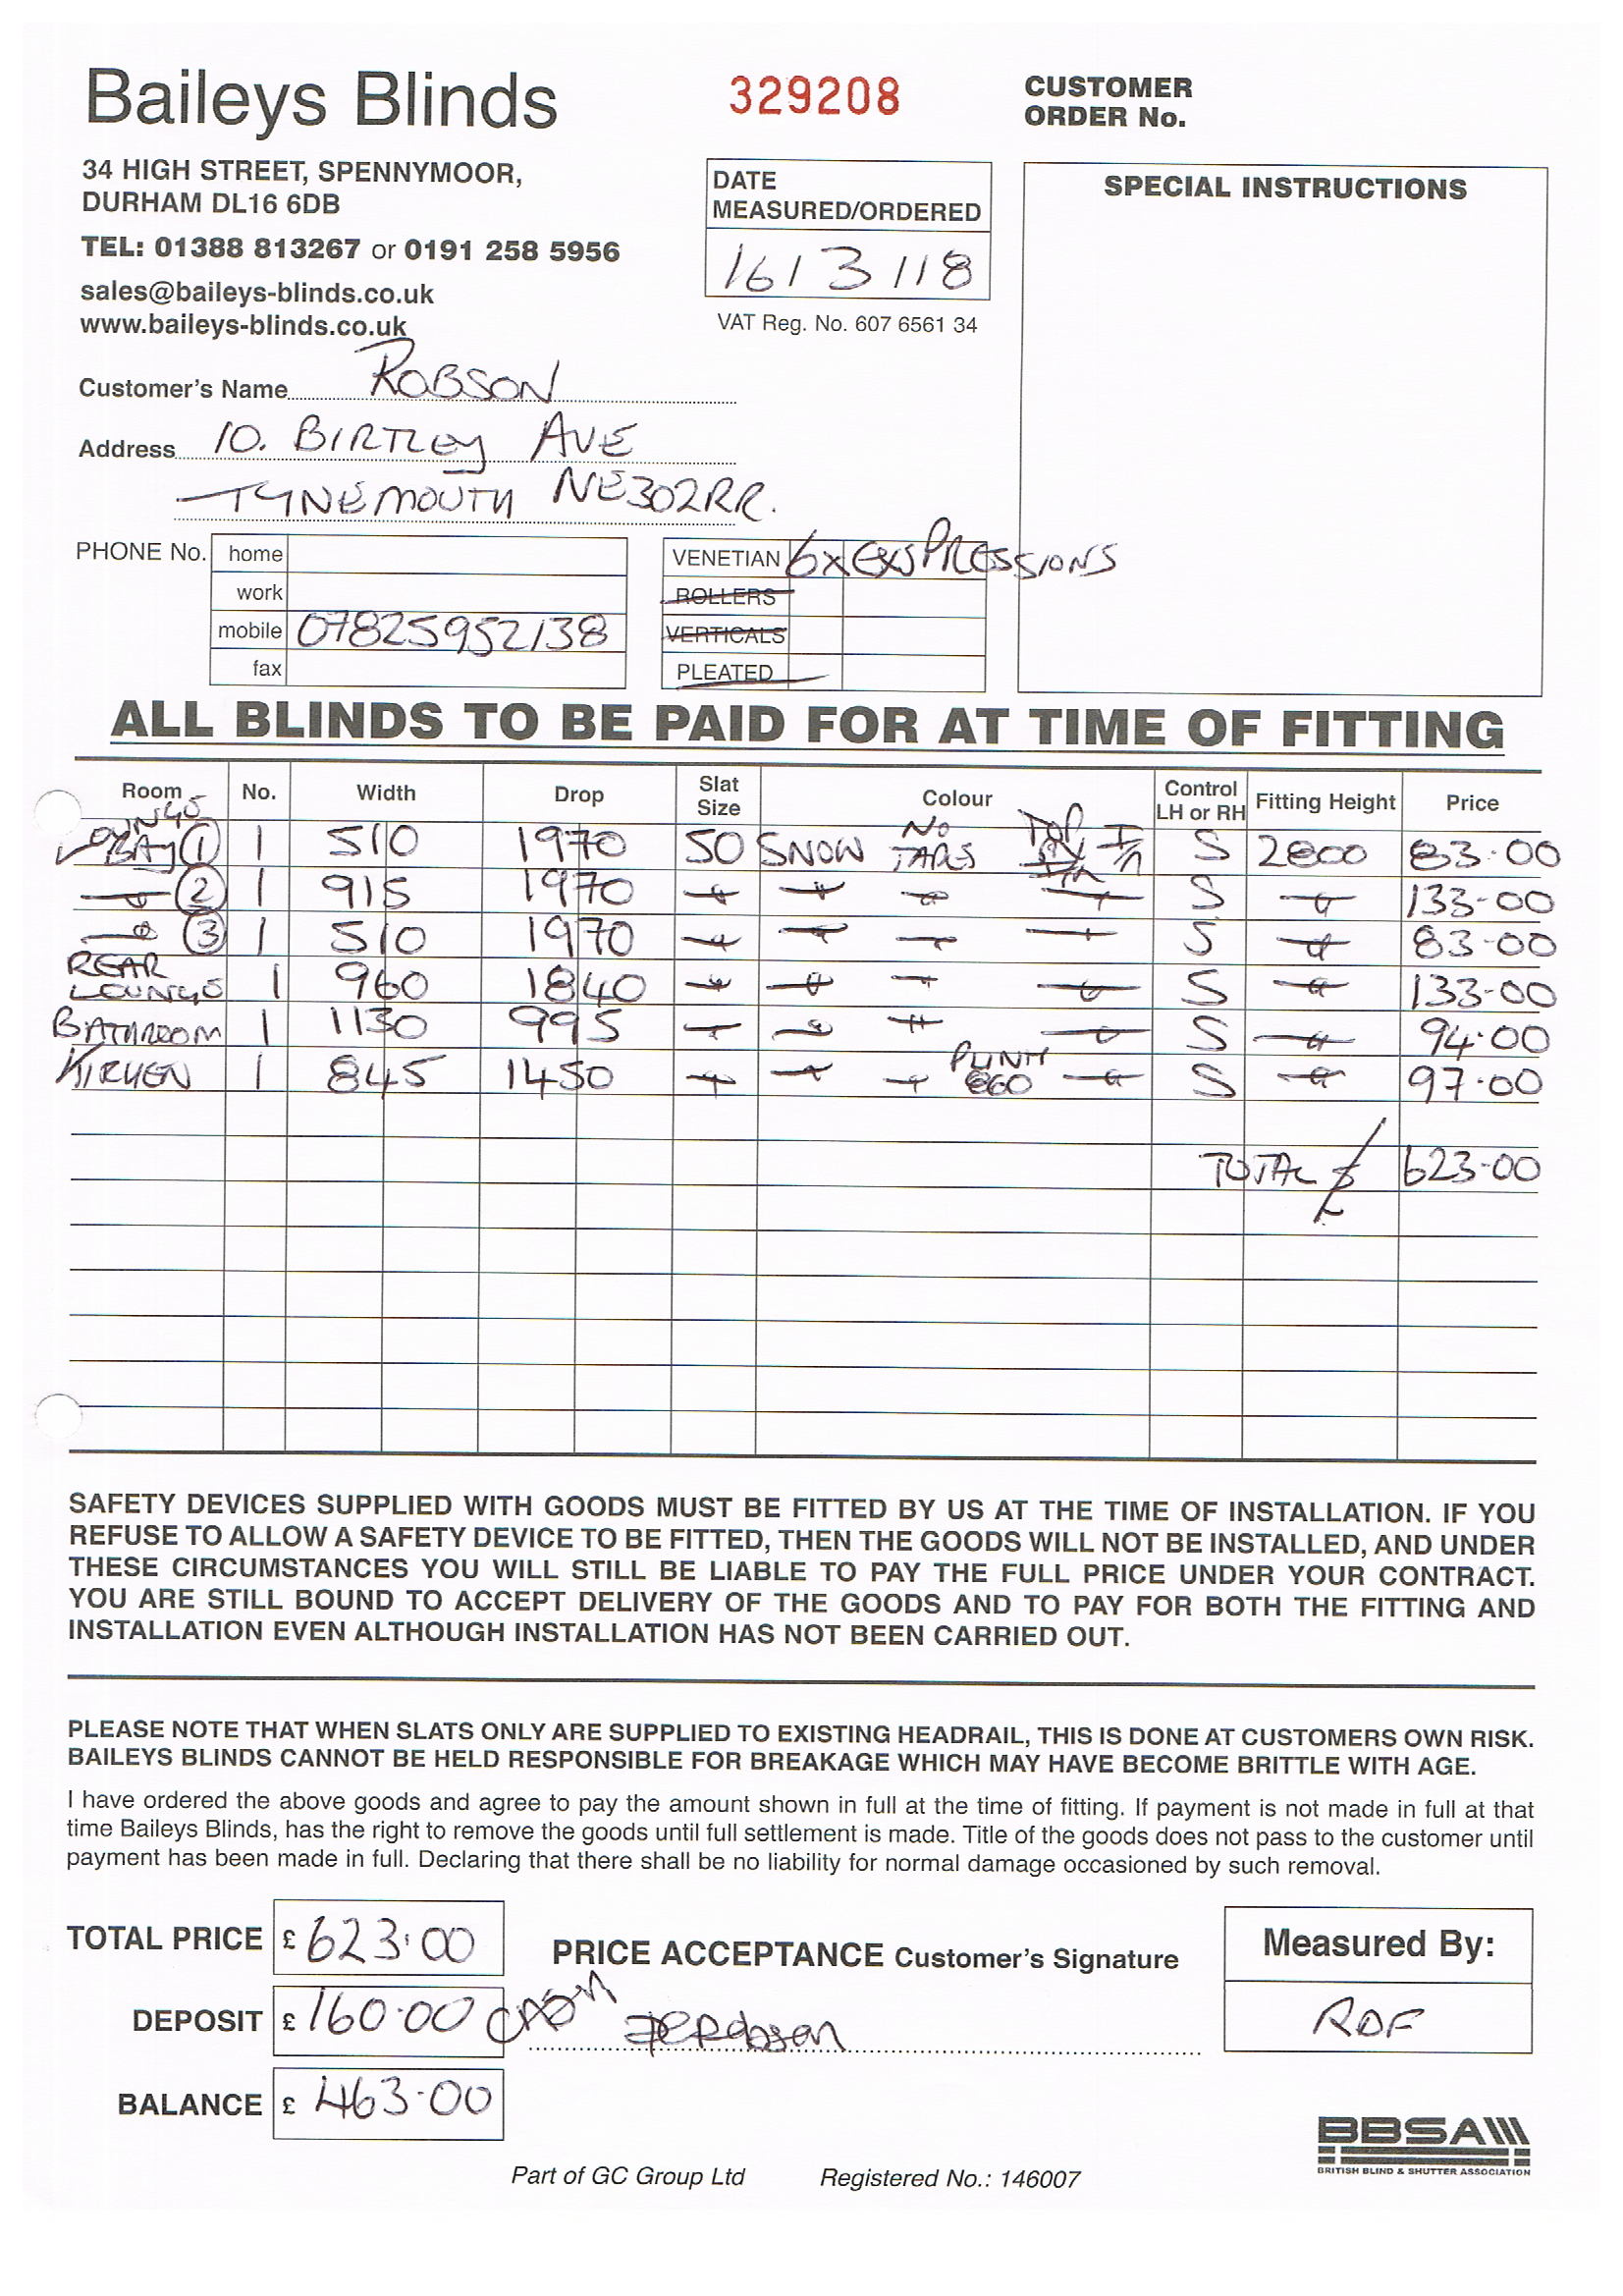 Baileys Blinds
329208
CUSTOMER
ORDER No.
34 HIGH STREET, SPENNYMOOR,
DURHAM DL16 6DB
TEL: 01388 813267 or 0191 258 5956
sales@baileys-blinds.co.uk
www.baileys-blinds.co.uk
DATE
MEASURED/ORDERED
16/3/18
VAT Reg. No. 607 6561 34
SPECIAL INSTRUCTIONS
Customer's Name ROBSON
Address 10. BIRTLEY AVE
TYNEMOUTH NE302RR.
PHONE No. home
work
mobile 07825952138
fax
VENETIAN 6x EXSPRESSIONS
ROLLERS
VERTICALS
PLEATED
ALL BLINDS TO BE PAID FOR AT TIME OF FITTING
Room No. Width Drop Slat Size Colour Control LH or RH Fitting Height Price
LOUNGE BAY 1 1 510 1970 50 SNOW NO TAPES S 2800 83-00
2 1 915 1970 S 133-00
3 1 510 1970 S 83-00
REAR LOUNGE 1 960 1840 S 133-00
BATHROOM 1 1130 995 S 94-00
KITCHEN 1 845 1450 PLINTH 860 S 97-00
TOTAL £ 623-00
SAFETY DEVICES SUPPLIED WITH GOODS MUST BE FITTED BY US AT THE TIME OF INSTALLATION. IF YOU
REFUSE TO ALLOW A SAFETY DEVICE TO BE FITTED, THEN THE GOODS WILL NOT BE INSTALLED, AND UNDER
THESE CIRCUMSTANCES YOU WILL STILL BE LIABLE TO PAY THE FULL PRICE UNDER YOUR CONTRACT.
YOU ARE STILL BOUND TO ACCEPT DELIVERY OF THE GOODS AND TO PAY FOR BOTH THE FITTING AND
INSTALLATION EVEN ALTHOUGH INSTALLATION HAS NOT BEEN CARRIED OUT.
PLEASE NOTE THAT WHEN SLATS ONLY ARE SUPPLIED TO EXISTING HEADRAIL, THIS IS DONE AT CUSTOMERS OWN RISK.
BAILEYS BLINDS CANNOT BE HELD RESPONSIBLE FOR BREAKAGE WHICH MAY HAVE BECOME BRITTLE WITH AGE.
I have ordered the above goods and agree to pay the amount shown in full at the time of fitting. If payment is not made in full at that
time Baileys Blinds, has the right to remove the goods until full settlement is made. Title of the goods does not pass to the customer until
payment has been made in full. Declaring that there shall be no liability for normal damage occasioned by such removal.
TOTAL PRICE £ 623.00
PRICE ACCEPTANCE Customer's Signature
Measured By:
DEPOSIT £ 160.00 CASH
RDF
BALANCE £ 463-00
BBSA
BRITISH BLIND & SHUTTER ASSOCIATION
Part of GC Group Ltd Registered No.: 146007